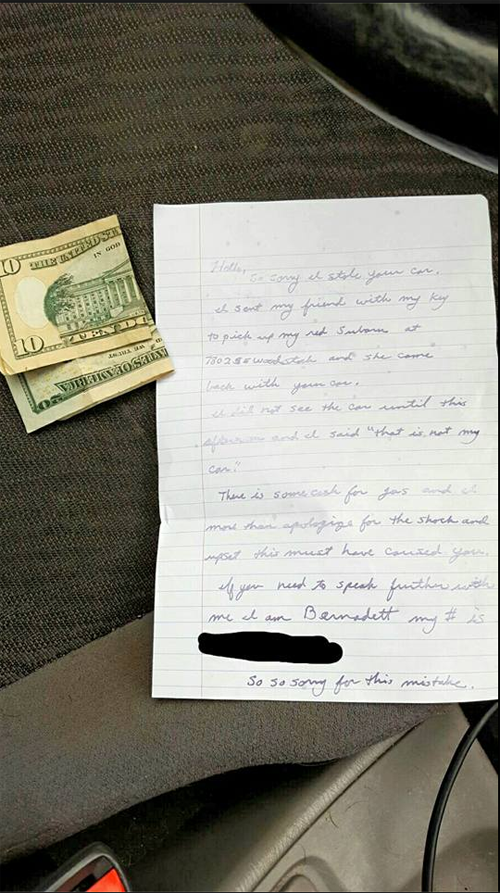 10
THE UNITED ST
IN GOD
TEN D
10
WE TRUST
STATES OF AMERICA
Hello,
So sorry I stole your car.
I sent my friend with my key
to pick up my red Subaru at
7802 SE Woodstock and she came
back with your car.
I did not see the car until this
afternoon and I said "that is not my
car."
There is some cash for gas and I
more than apologize for the shock and
upset this must have caused you.
If you need to speak further with
me I am Bernadett my # is
So so sorry for this mistake.